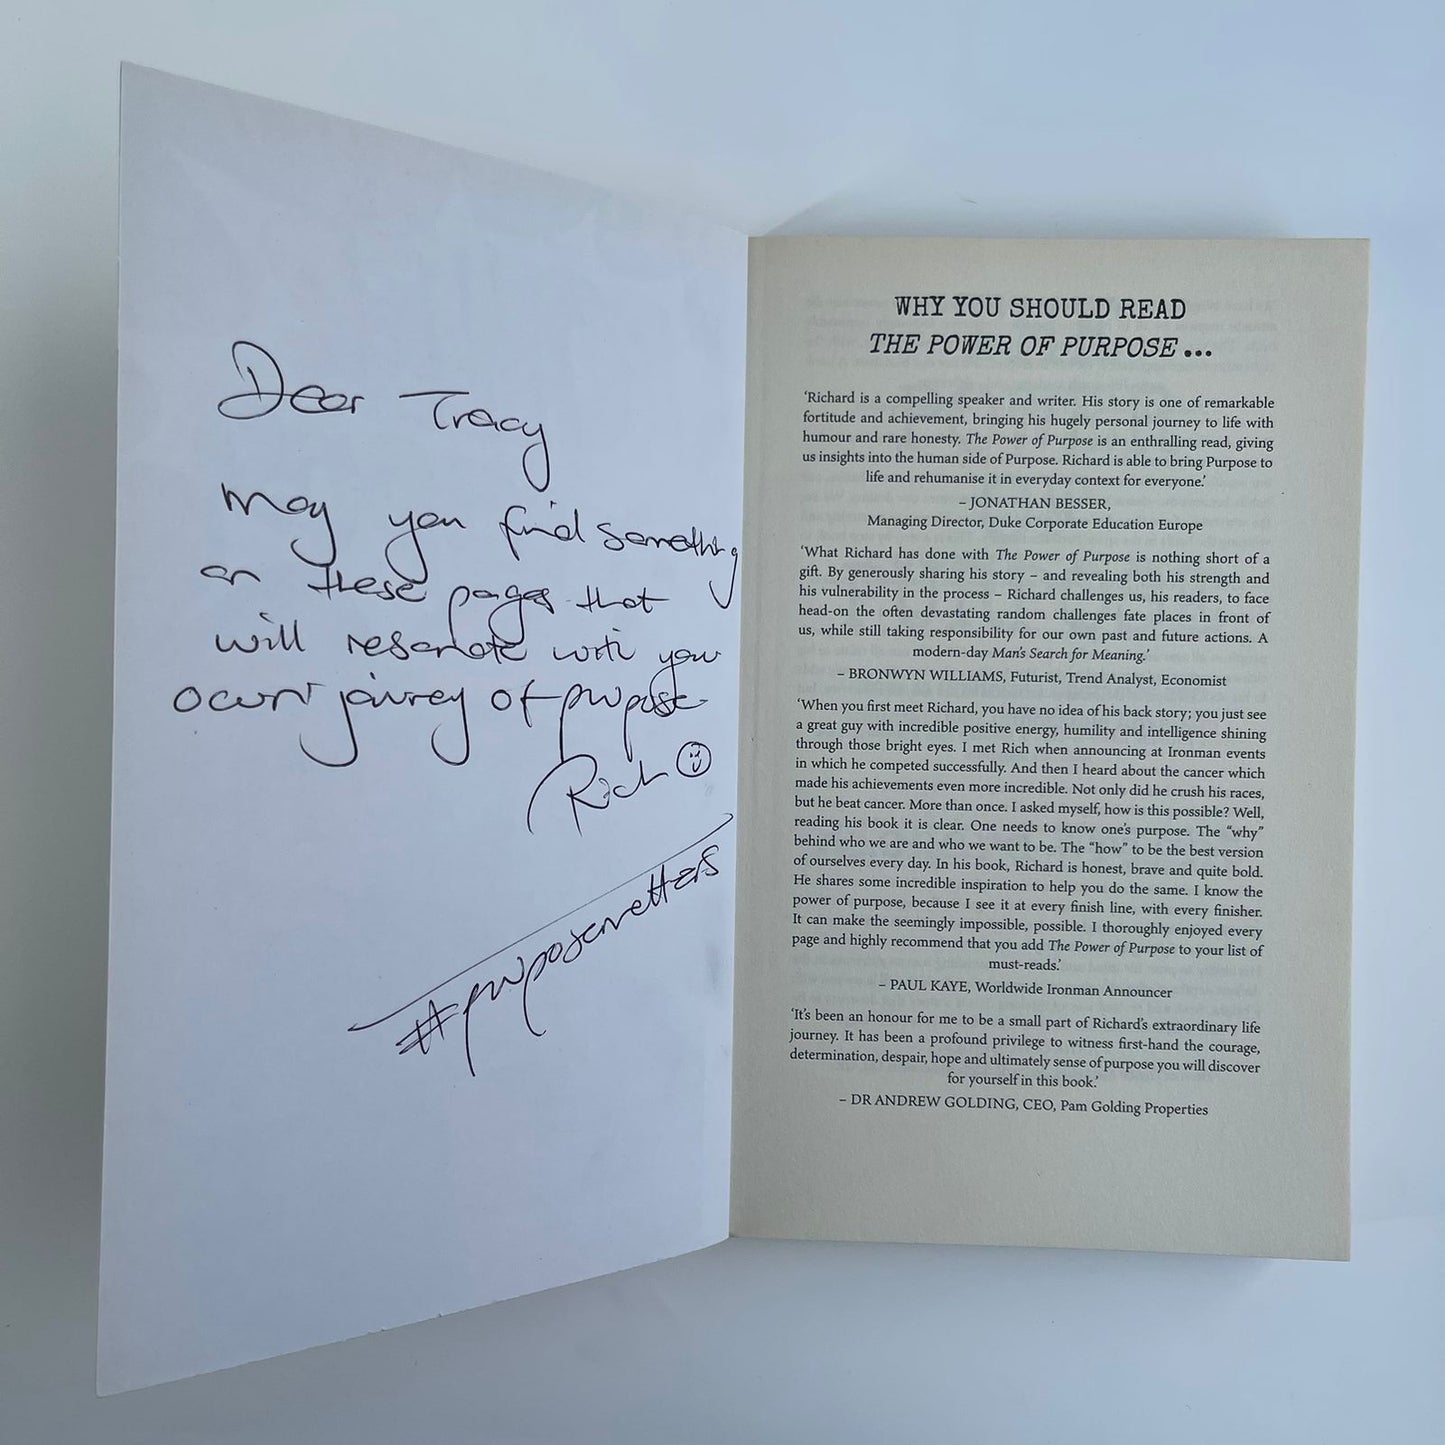 Dear Tracy
May you find something
on these pages that
will resonate with your
own journey of purpose
Rich
#purposematters
WHY YOU SHOULD READ
THE POWER OF PURPOSE ...
‘Richard is a compelling speaker and writer. His story is one of remarkable
fortitude and achievement, bringing his hugely personal journey to life with
humour and rare honesty. The Power of Purpose is an enthralling read, giving
us insights into the human side of Purpose. Richard is able to bring Purpose to
life and rehumanise it in everyday context for everyone.’
– JONATHAN BESSER,
Managing Director, Duke Corporate Education Europe
‘What Richard has done with The Power of Purpose is nothing short of a
gift. By generously sharing his story – and revealing both his strength and
his vulnerability in the process – Richard challenges us, his readers, to face
head-on the often devastating random challenges fate places in front of
us, while still taking responsibility for our own past and future actions. A
modern-day Man’s Search for Meaning.’
– BRONWYN WILLIAMS, Futurist, Trend Analyst, Economist
‘When you first meet Richard, you have no idea of his back story; you just see
a great guy with incredible positive energy, humility and intelligence shining
through those bright eyes. I met Rich when announcing at Ironman events
in which he competed successfully. And then I heard about the cancer which
made his achievements even more incredible. Not only did he crush his races,
but he beat cancer. More than once. I asked myself, how is this possible? Well,
reading his book it is clear. One needs to know one’s purpose. The “why”
behind who we are and who we want to be. The “how” to be the best version
of ourselves every day. In his book, Richard is honest, brave and quite bold.
He shares some incredible inspiration to help you do the same. I know the
power of purpose, because I see it at every finish line, with every finisher.
It can make the seemingly impossible, possible. I thoroughly enjoyed every
page and highly recommend that you add The Power of Purpose to your list of
must-reads.’
– PAUL KAYE, Worldwide Ironman Announcer
‘It’s been an honour for me to be a small part of Richard’s extraordinary life
journey. It has been a profound privilege to witness first-hand the courage,
determination, despair, hope and ultimately sense of purpose you will discover
for yourself in this book.’
– DR ANDREW GOLDING, CEO, Pam Golding Properties